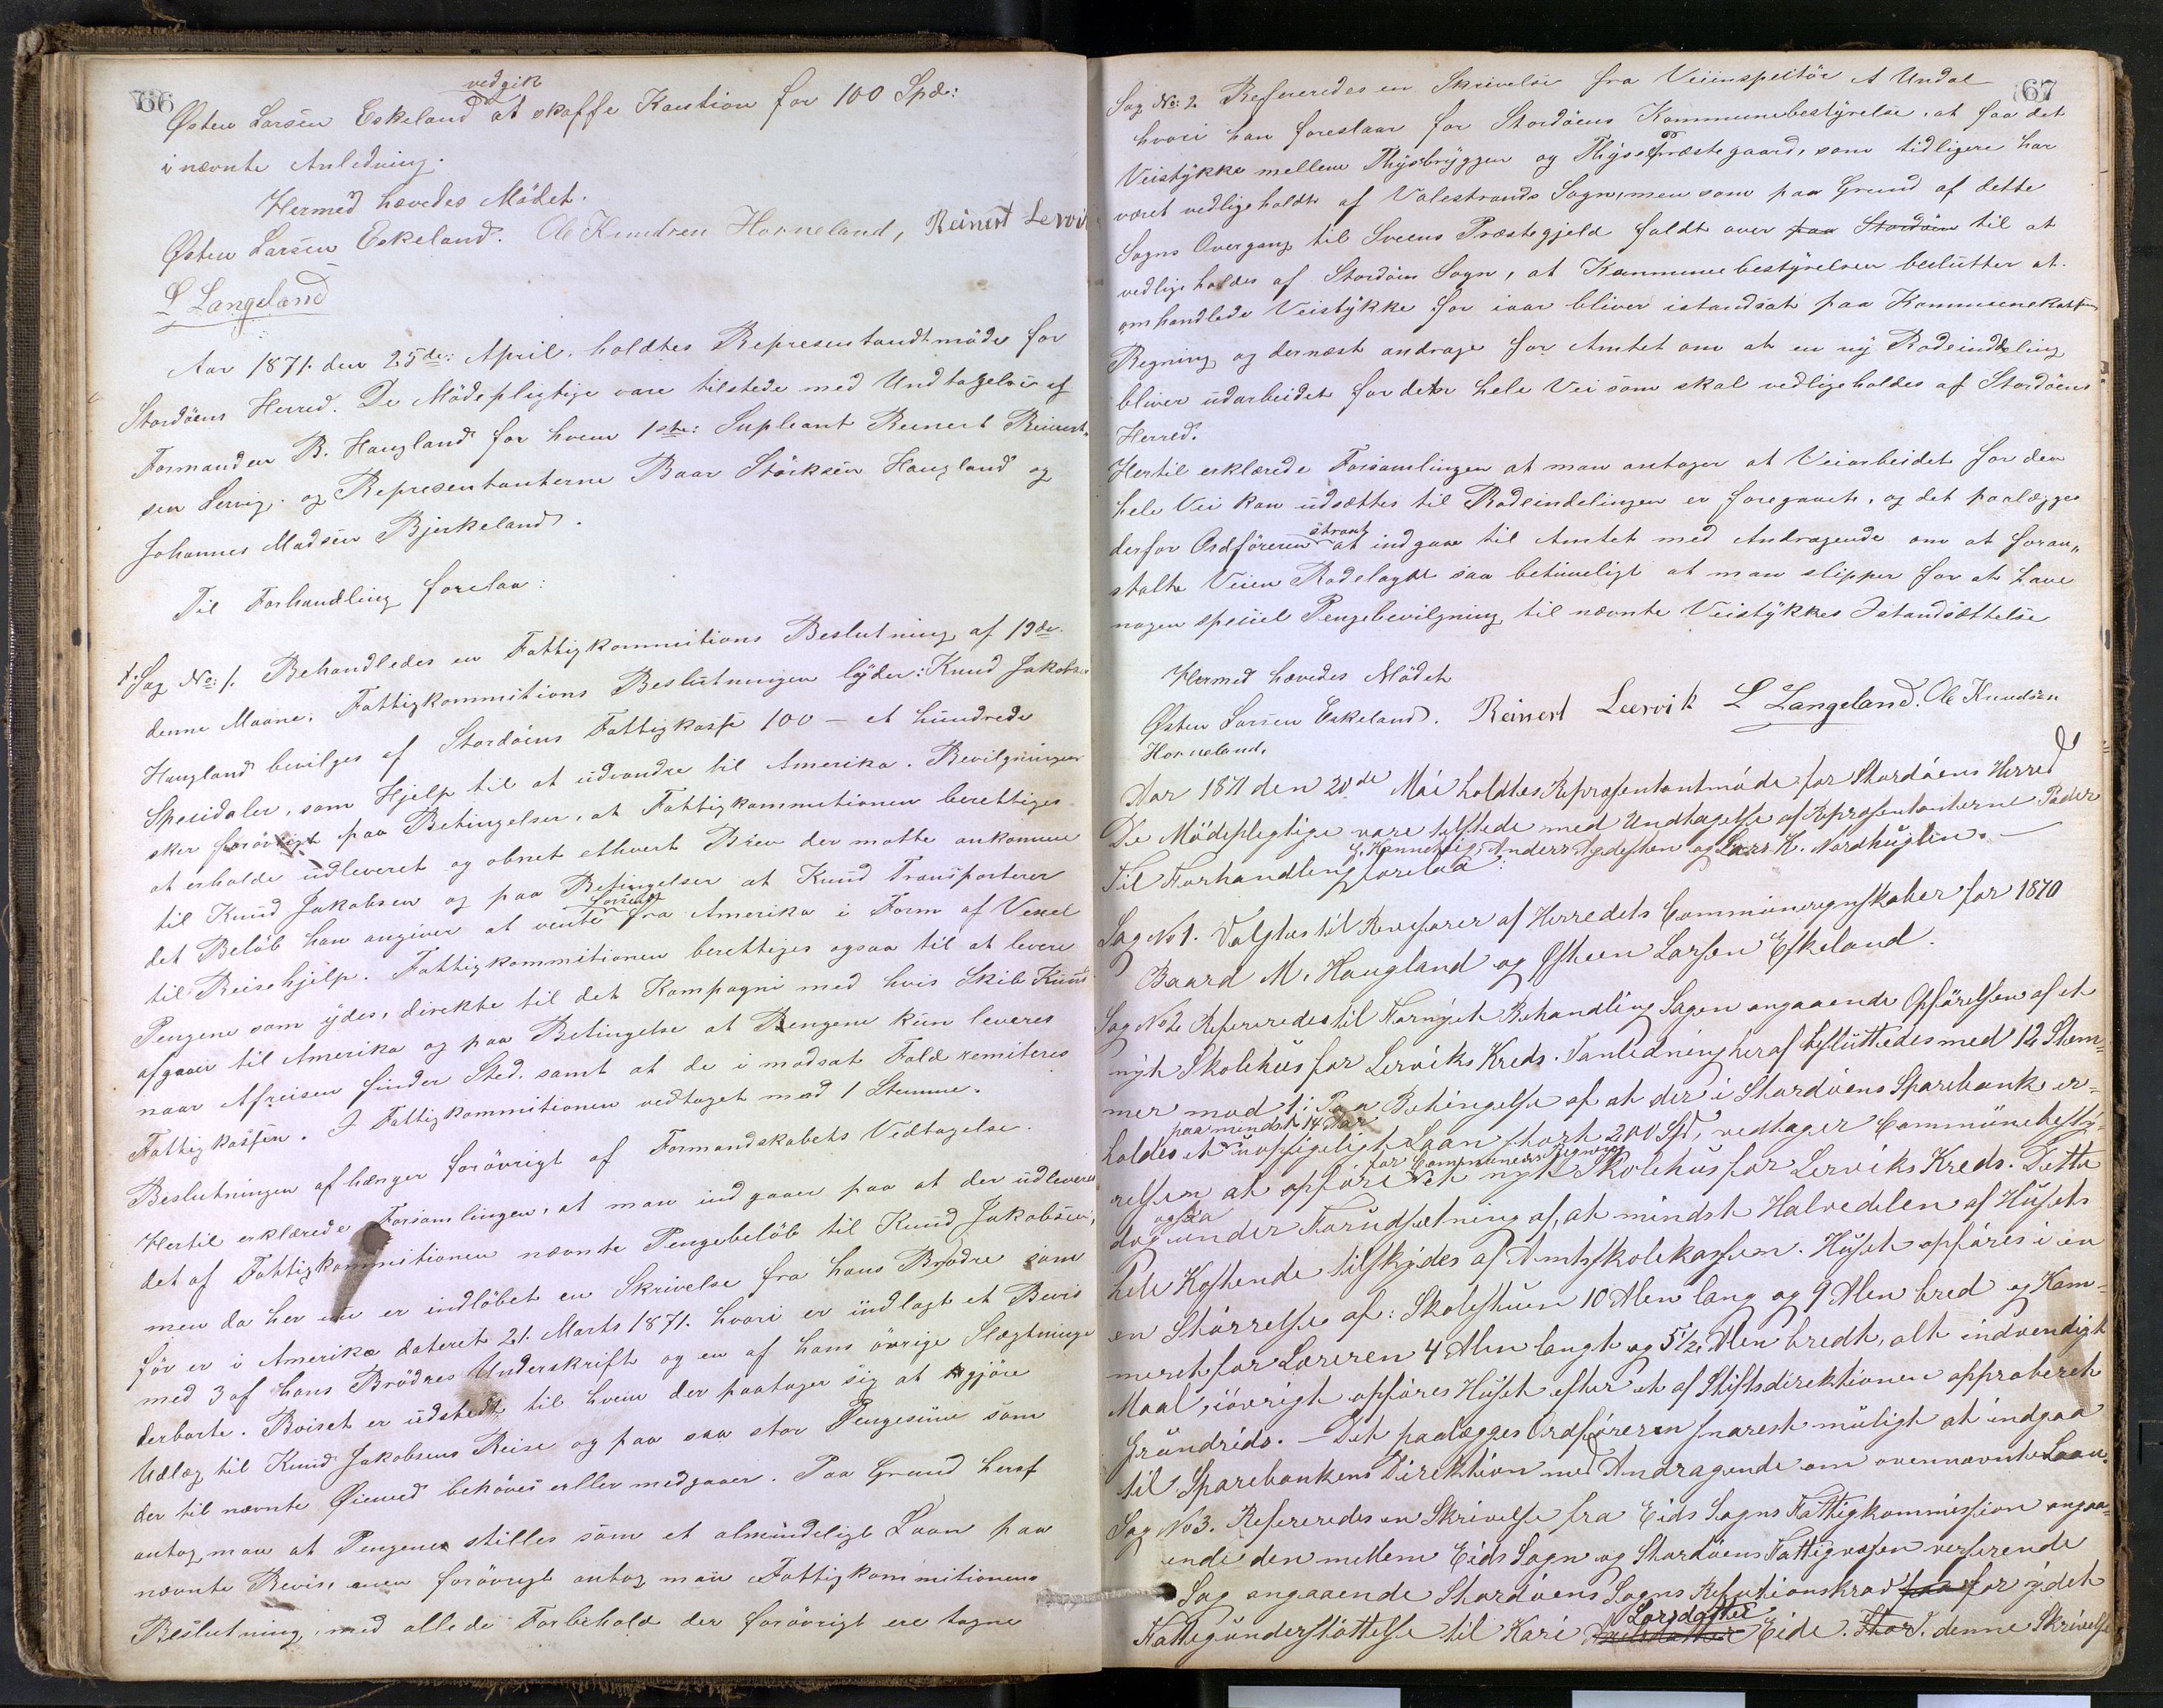 66
vedgik
Østen Larsen Eskeland at skaffe Kaution for 100 Spd:
i nævnte Anledning.
Hermed hævedes Mödet.
Østen Larsen Eskeland. Ole Knudsen Horneland, Reinert Lervi
L Langeland
Aar 1871. den 25de: April. holdtes Representandtmöde for
Stordöens Herred. De Mödepligtige vare tilstede med Undtagelse af
Formanden B. Haugland for hvem 1ste: Supleant Reinert Reinert-
sen Lervig. og Representanterne Baar Störksen Haugland og
Johannes Madsen Bjerkeland.
Til Forhandling forelaa:
Sag No: 1. Behandledes en Fattigkommitions Beslutning af 19de.
denne Maane. Fattigkommitions Beslutningen lyder: Knud Jakobsen
Haugland bevilges af Stordöens Fattigkasse 100 - et hundrede
Spesidaler, som Hjelp til at udvandre til Amerika. Bevilgningen
sker forövrigt paa Betingelser, at Fattigkommitionen berettiges
at erholde udleveret og obnet ethvert Brev der motte ankomme
til Knud Jakobsen og paa Betingelser at Knud Transporterer
det Belöb han angiver at vente fra Amerika i Form af Vexel
til Reisehjelp. Fattigkommitionen berettiges ogsaa til at levere
Pengene som ydes, direkte til det Kompagni med hvis Skib Knud
afgaar til Amerika og paa Betingelse at Pengene kun leveres
naar Afreisen finder Sted. samt at de i modsat Fald remiteres
Fattigkassen. I Fattigkommitionen vedtaget mod 1 Stemme.
Beslutningen afhænger forövrigt af Formandskabets Vedtagelse.
Hertil erklærede Forsamlingen, at man indgaaer paa at der udleveres
det af Fattigkommitionen nævnte Pengebelöb til Knud Jakobsen,
men da her nu er indlöbet en Skrivelse fra hans Brödre som
för er i Amerika dateret 21. Marts 1871. hvori er indlagt et Bevis
med 3 af hans Brödres Underskrift og en af hans övrige Slægtninge
derborte. Beiset er udstedt til hvem der paatager sig at gjöre
Udlæg til Knud Jakobsens Reise og paa saa stor Pengesum som
der til nævnte Øiemed behöves eller medgaaer. Paa Grund heraf
antog man at Pengene stilles som et almindeligt Laan paa
nævnte Bevis, men forövrigt antog man Fattigkommitionens
Beslutning med alle de Forbehold der forövrigt ere tagne
67
Sag No: 2. Refereredes en Skrivelse fra Veiinspektör A Undal
hvori han foreslaar for Stordöens Kommunebestyrelse, at faa det
Veistykke mellem Thysebryggen og Thyse Præstegaard, som tidligere har
været vedligeholdt af Valestrands Sogn, men som paa Grund af dette
Sogns Overgang til Sveens Præstegjeld faldt over paa Stordöen til at
vedligeholdes af Stordöens Sogn, at Kommunebestyrelsen beslutter at
omhandlede Veistykke for iaar bliver istandsat paa Kommunekassens
Regning og dernæst andrage for Amtet om at en ny Rodeinddeling
bliver udarbeidet for den hele Vei som skal vedligeholdes af Stordöens
Herred.
Hertil erklærede Forsamlingen at man antager at Veiarbeidet for den
hele Vei kan udsættes til Rodeindelingen er foregaaet, og det paalægges
strax
derfor Ordföreren at indgaa til Amtet med Andragende om at foran„
stalte Veien Rodelagdt saa betimeligt at man slipper for at have
nogen speciel Pengebevilgning til nævnte Veistykkes Istandsættelse
Hermed hævedes Mödet
Østen Larsen Eskeland. Reinert Leervik L Langeland. Ole Knudsen
Horneland.
Aar 1871 den 20de Mai holdtes Repræsentantmöde for Stordöens Herred
De Mödepligtige vare tilstede med Undtagelse af Repræsentanterne Peder
J. Hannevig, Anders Agdesten og Lars K. Nordhuglen.
Til Forhandling forelaa:
Sag No 1. Valgtes til Revisorer af Herredets Communeregnskaber for 1870
Baard M. Haugland og Østeen Larsen Eskeland.
Sag No 2. Refereredes til Fornyet Behandling Sagen angaaende Opförelsen af et
nyt Skolehus for Lerviks Kreds. I Anledning heraf besluttedes med 12 Stem-
mer mod 1: Paa Betingelse af at der i Stordöens Sparebank er-
paa mindst 14 Aar
holdes et uopsigeligt Laan stort 200 Spd, vedtager Communebesty-
for Communens Regning
relsen at opföre et nyt Skolehus for Lerviks Kreds. Dette
ogsaa
dog under Forudsetning af, at mindst Halvedelen af Husets
hele Kostende tilskydes af Amtsskolekassen. Huset opföres i en
en Störrelse af: Skolestuen 10 Alen lang og 9 Alen bred og Kam-
meret for Læreren 4 Alen langt og 5½ Alen bredt, alt indvendigt
Maal, iövrigt opföres Huset efter et af Stiftsdirektionen approberet
Grundrids. - Det paalægges Ordföreren snarest muligt at indgaa
til Sparebankens Direktion med Andragende om ovennævnte Laan.
Sag No 3. Refereredes en Skrivelse fra Eids Sogns Fattigkommission angaa-
ende den mellem Eids Sogn og Stordöens Fattigvæsen verserende
Sag angaaende Stordöens Sogns Refutionskrav for ydet
Larsdatter
Fattigunderstöttelse til Kari Eide. denne Skrivelse